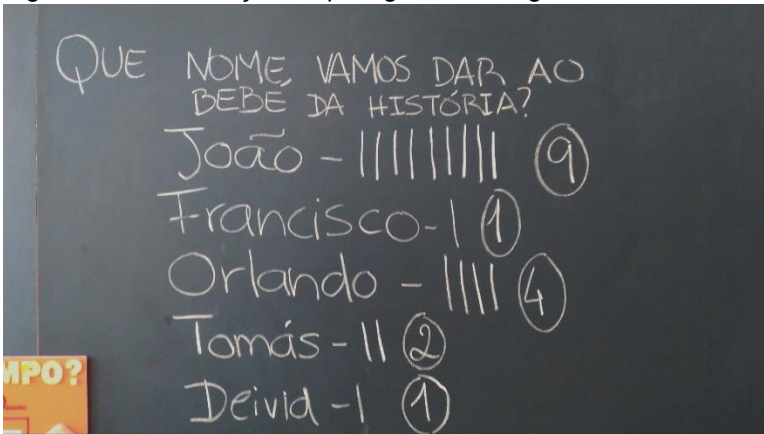 QUE NOME, VAMOS DAR AO
BEBÉ DA HISTÓRIA?
João - ||||||||| 9
Francisco - | 1
Orlando - |||| 4
Tomás - || 2
Deivid - | 1
MPO?